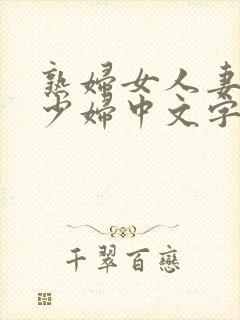 熟婦女人妻
少婦中文字
千翠百戀